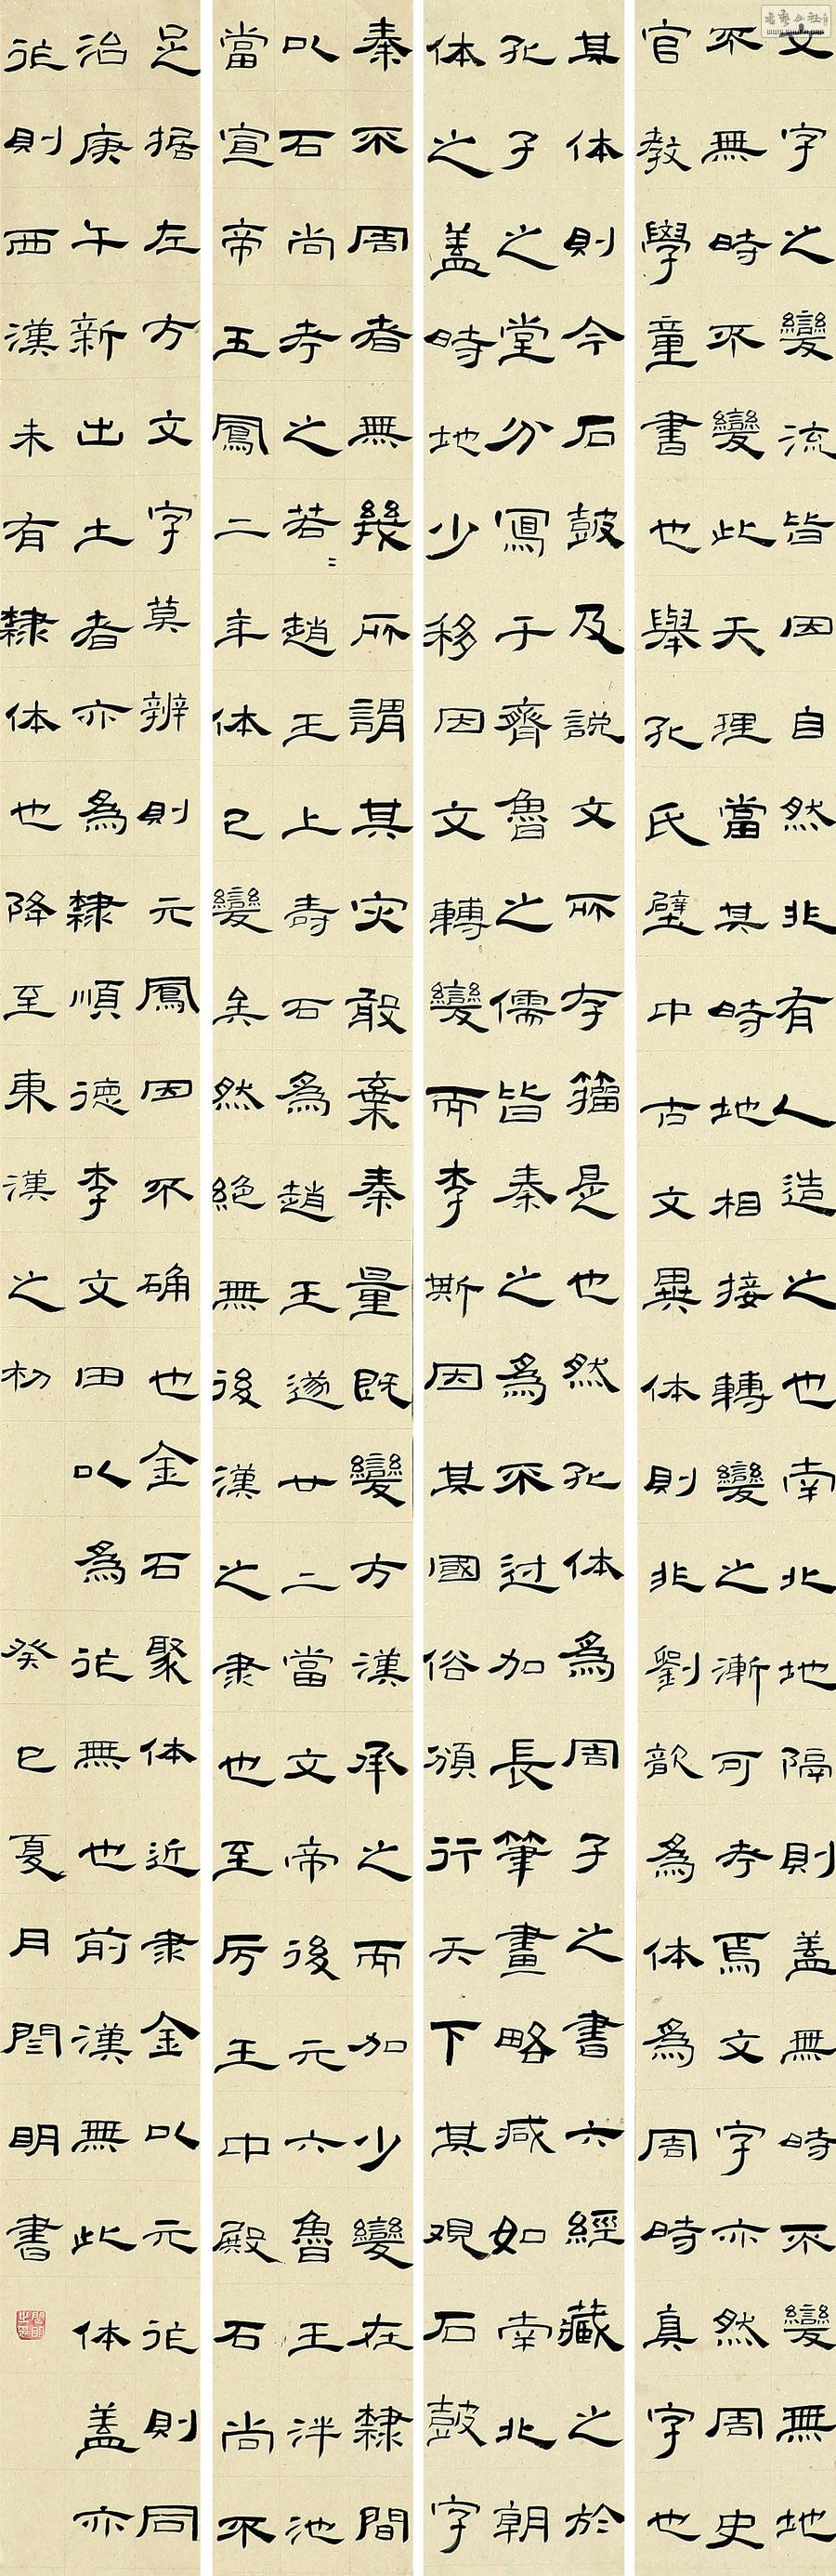 文字之變流皆因自然非有人造之也南北地隔則蓋無時不變無地
不無時不變此天理當其時地相接轉變之漸可考焉文字亦然周史
官教學童書也與孔氏壁中古文異体則非劉歆為体為周時真字也
其体則今石鼓及說文所存籀是也然孔体為周子之書六經藏之於
孔子之堂分寫于齊魯之儒皆秦之為不过加長筆畫略减如南北朝
体之蓋時地少移因文轉變而李斯因其國俗頒行天下其观石鼓字
秦不周者無幾所謂其灾敢棄秦量既變方漢承之而加少變在隸間
以石尚考之若二趙王上壽石為趙王遂廿二當文帝後元六魯王泮池
當宣帝五鳳二年体已變矣然絶無後漢之隶也至厉王中殿石尚不
足据左方文字莫辨則元鳳因不确也金石聚体近隶金以元疟則同
治庚午新出土者亦為隸順德李文田以為疟無也前漢無此体蓋亦
疟則西漢未有隸体也降至東漢之初
癸巳夏月閆明書